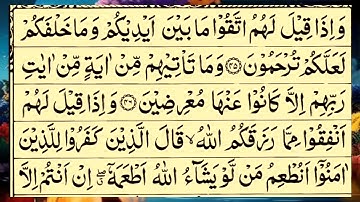 وَاِذَا قِيْلَ لَهُمُ اتَّقُوْا مَا بَيْنَ اَيْدِيْكُمْ وَمَا خَلْفَكُمْ
لَعَلَّكُمْ تُرْحَمُوْنَ ﴿۴۵﴾ وَمَا تَاْتِيْهِمْ مِّنْ اٰيَةٍ مِّنْ اٰيٰتِ
رَبِّهِمْ اِلَّا كَانُوْا عَنْهَا مُعْرِضِيْنَ ﴿۴۶﴾ وَاِذَا قِيْلَ لَهُمْ
اَنْفِقُوْا مِمَّا رَزَقَكُمُ اللّٰهُ ۙ قَالَ الَّذِيْنَ كَفَرُوْا لِلَّذِيْنَ
اٰمَنُوْٓا اَنُطْعِمُ مَنْ لَّوْ يَشَآءُ اللّٰهُ اَطْعَمَهٗٓ ۖ اِنْ اَنْتُمْ اِلَّا